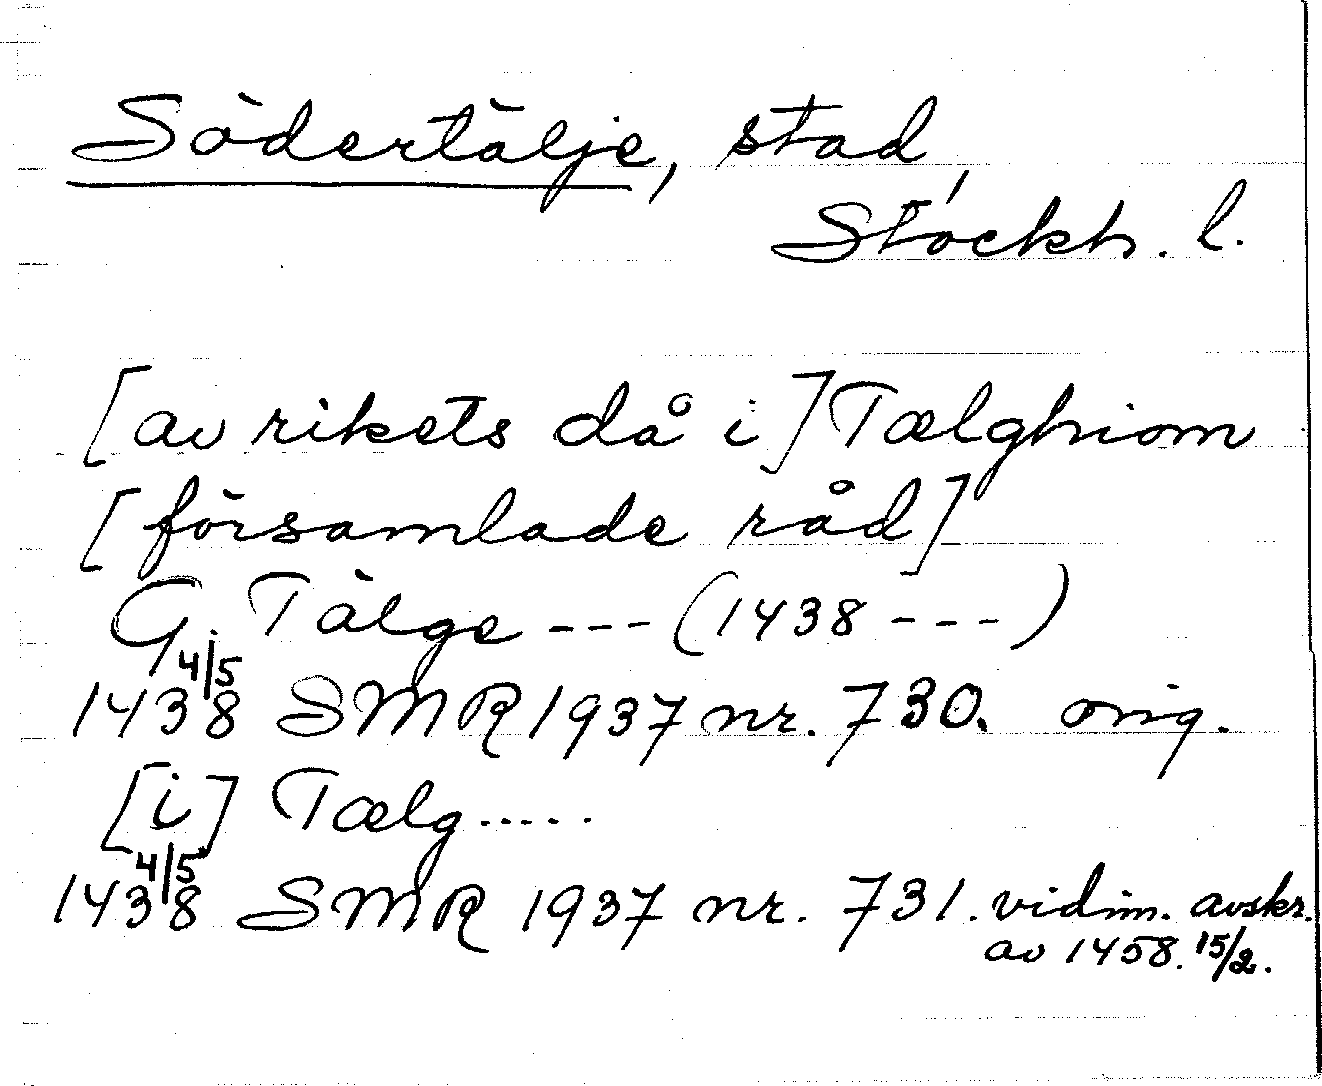 Södertälje, stad,
Stockh. l.
[av rikets då i] Tælghiom
[församlade råd]
G. Tälge --- (1438 ---)
1438 4/5 SMR 1937 nr. 730. orig.
[i] Tælg.....
1438 4/5 SMR 1937 nr. 731. vidim. avskr.
av 1458. 15/2.